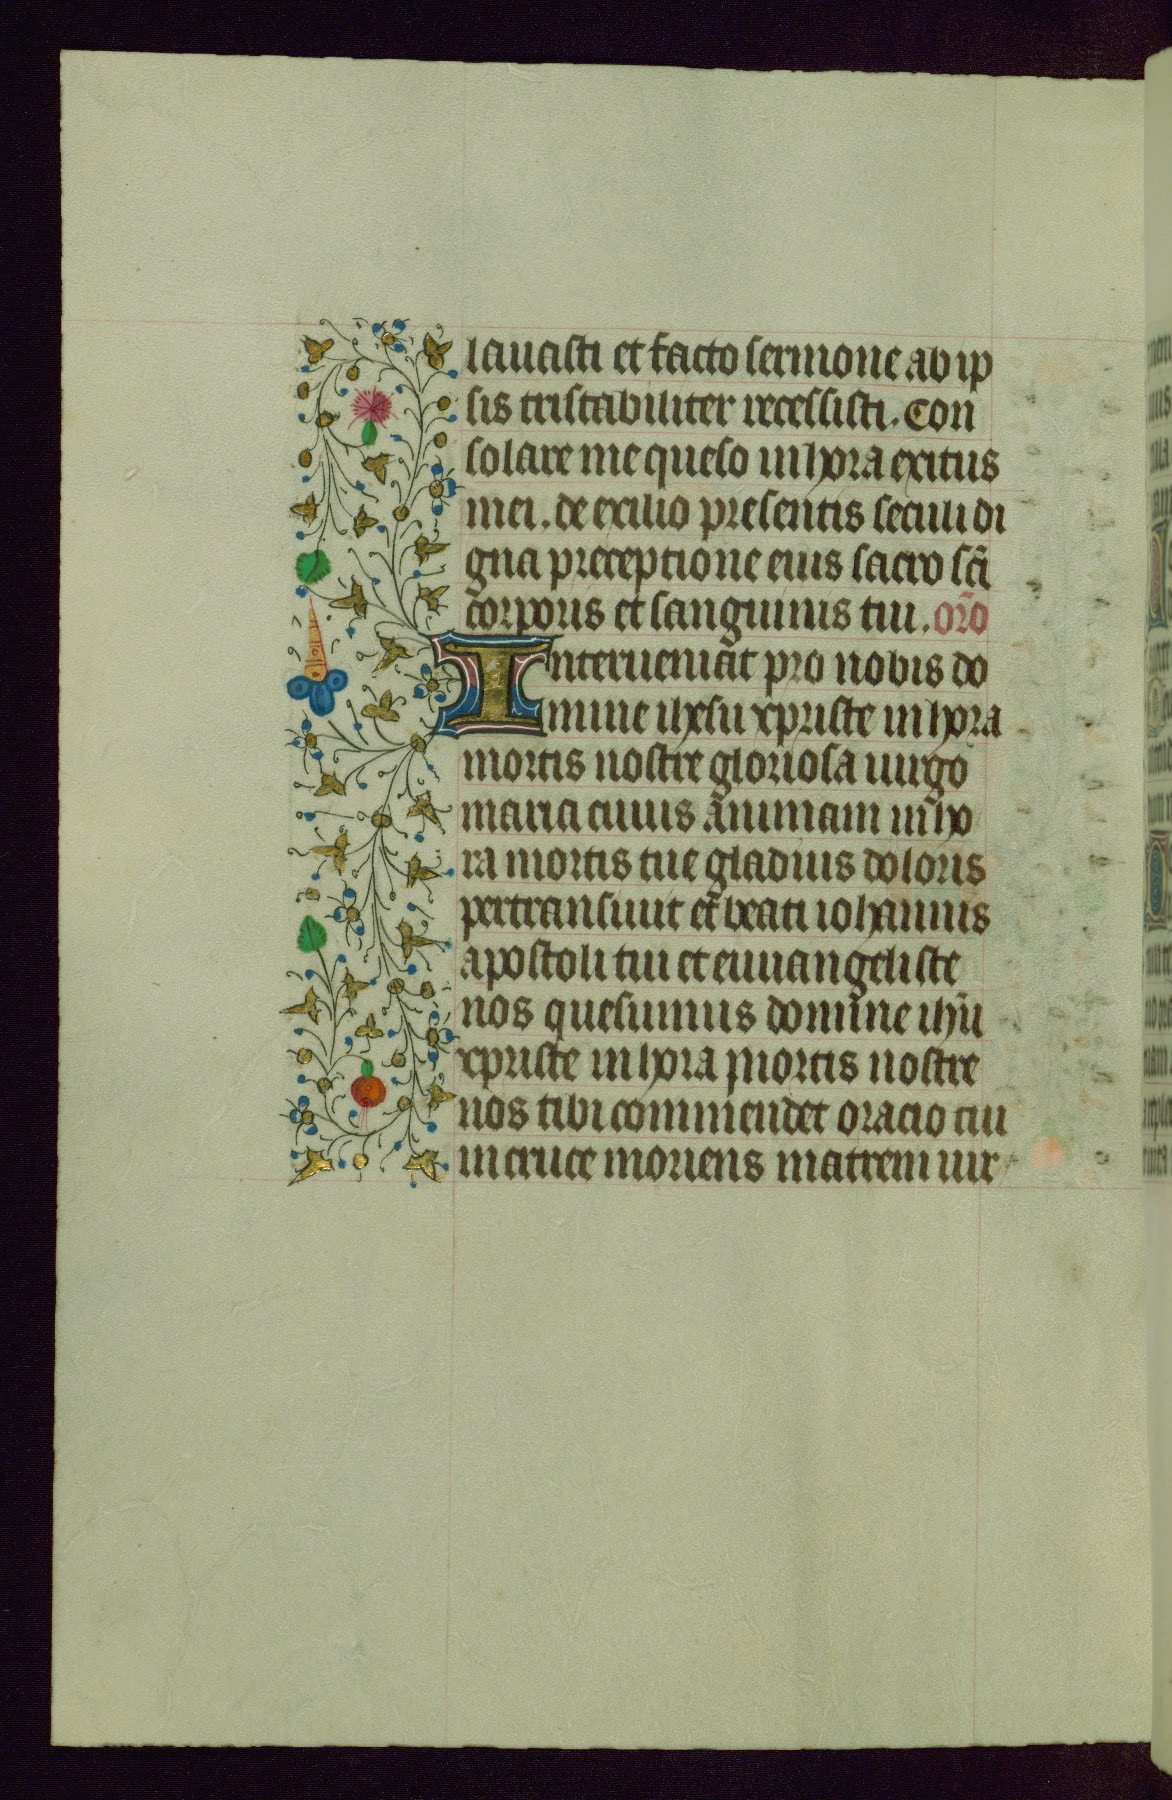 lauasti et facto sermone ab ip
sis tristabiliter recessisti. Con
solare me queso in hora exitus
mei. de exilio presentis seculi di
gna preceptione eius sacro scī
corporis et sanguinis tui. orō
Interueniāt pro nobis do
mine ihesu xpriste in hora
mortis nostre gloriosa uirgo
maria cuius animam in ho
ra mortis tue gladius doloris
pertransiuit et beati iohannis
apostoli tui et euuangeliste
nos quesumus domine ihū
xpriste in hora mortis nostre
nos tibi commendet oracio cui
in cruce moriens matrem uir